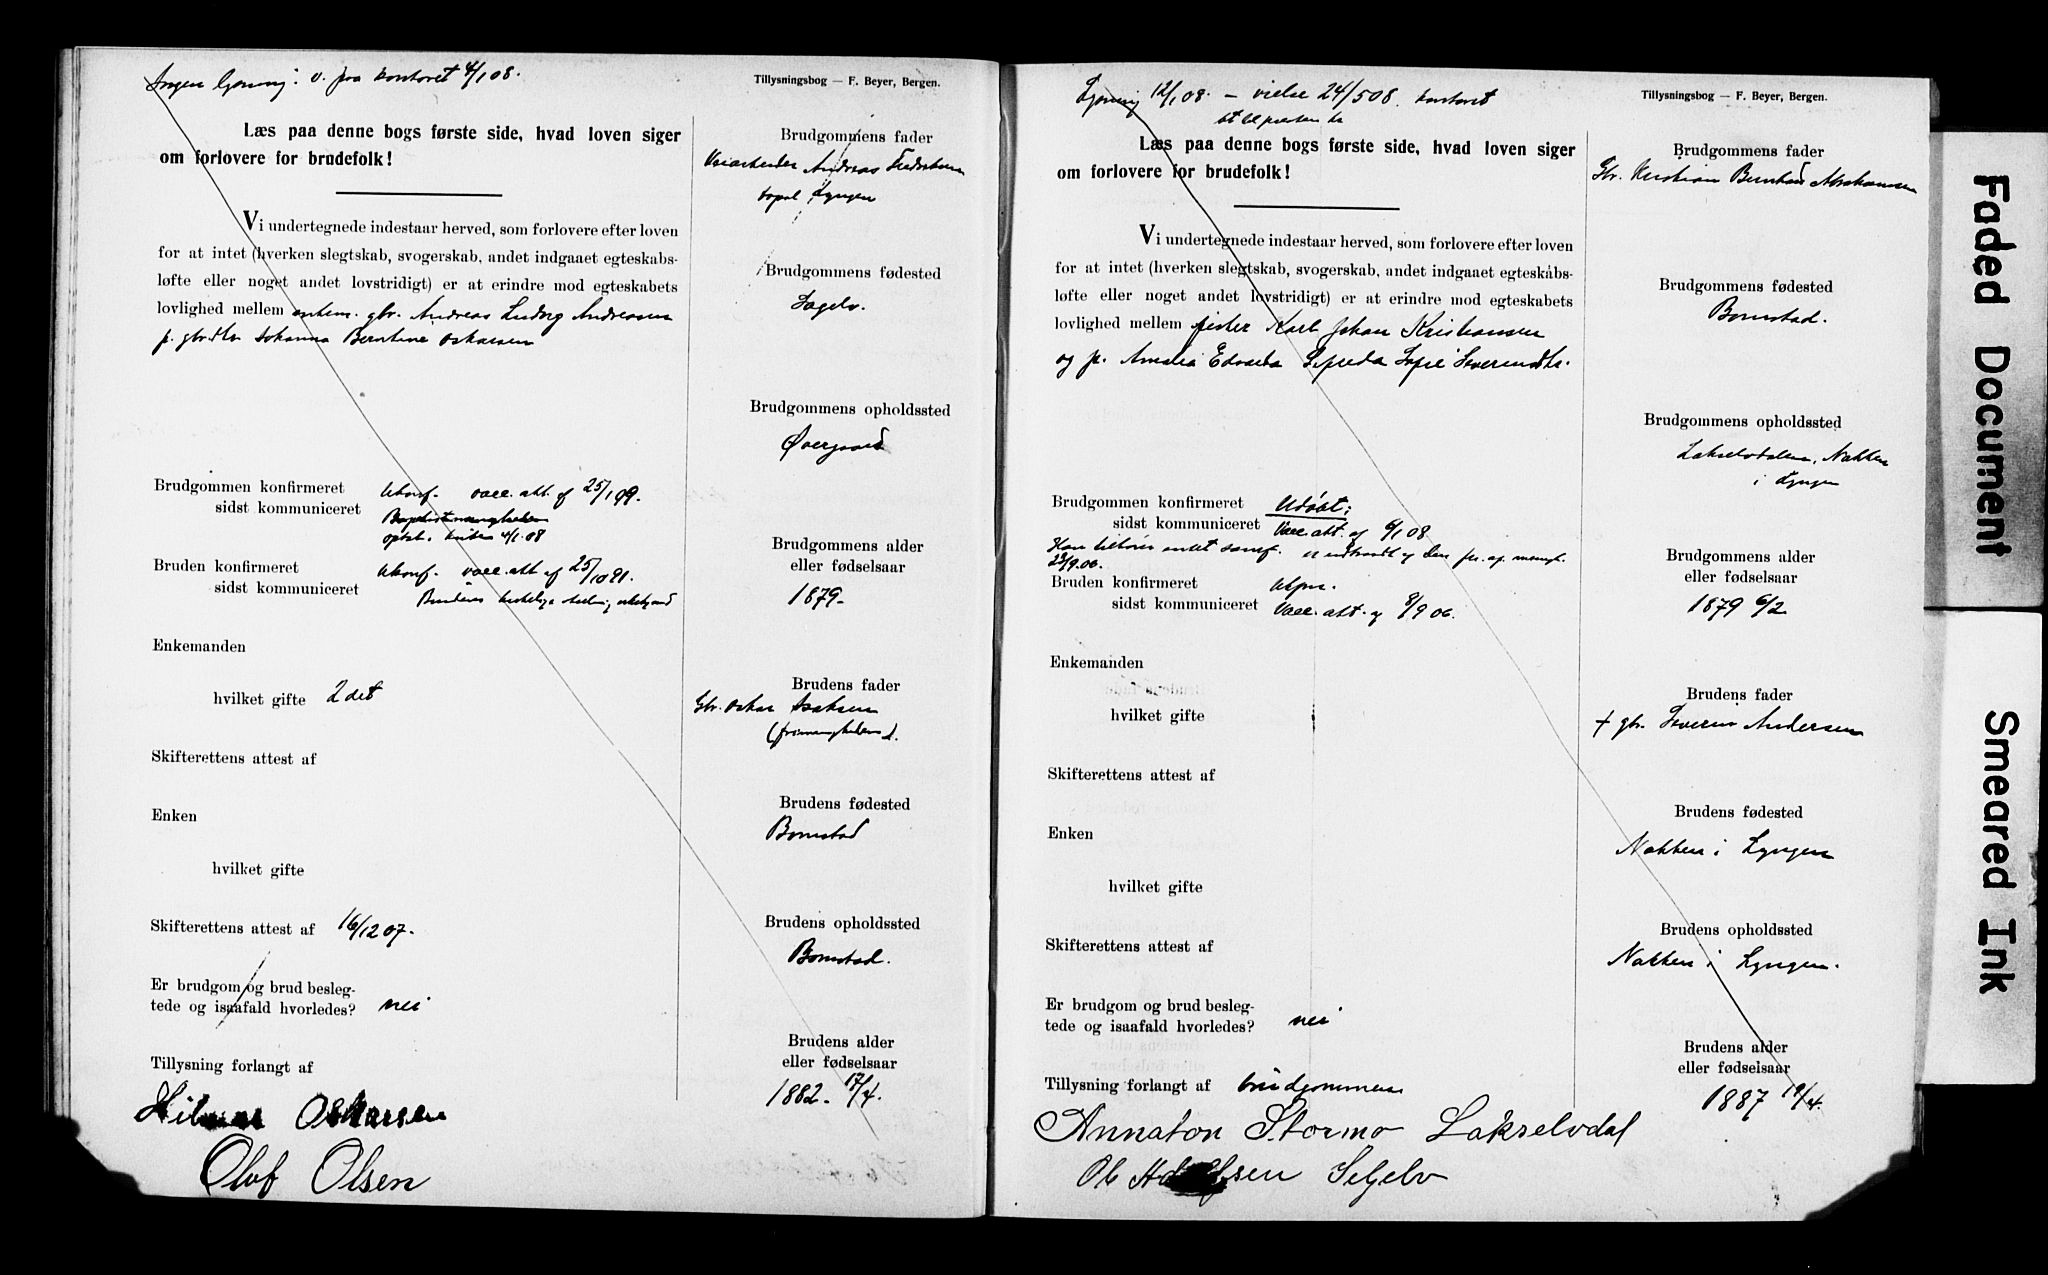 Ingen lysning: v. fra kontoret 4/1 08.
Tillysningsbog — F. Beyer, Bergen.
Læs paa denne bogs første side, hvad loven siger
om forlovere for brudefolk!
Vi undertegnede indestaar herved, som forlovere efter loven
for at intet (hverken slegtskab, svogerskab, andet indgaaet egteskabs-
løfte eller noget andet lovstridigt) er at erindre mod egteskabets
lovlighed mellem enkem. gbr. Andreas Ludvig Andreassen
p. gbrdtr Johanna Berntine Oskarsen
Brudgommen konfirmeret Ukonf. vacc. att. af 25/1 99.
sidst kommuniceret
Bruden konfirmeret Ukonf. vacc. att af 25/10 91.
sidst kommuniceret
Enkemanden
hvilket gifte 2det
Skifterettens attest af
Enken
hvilket gifte
Skifterettens attest af 16/12 07.
Er brudgom og brud besleg-
tede og isaafald hvorledes? nei
Tillysning forlangt af
Hilmar Oskarsen
Olof Olsen
Brudgommens fader
Andreas
Lyngen
Brudgommens fødested
Sagelv.
Brudgommens opholdssted
Øvergaard
Brudgommens alder
eller fødselsaar
1879.
Brudens fader
Gbr. Oskar Isaksen
Brudens fødested
Bomstad
Brudens opholdssted
Bomstad.
Brudens alder
eller fødselsaar
1882. 17/4.
Lysning 12/1 08. — vielse 24/5 08. kontoret
Tillysningsbog — F. Beyer, Bergen.
Læs paa denne bogs første side, hvad loven siger
om forlovere for brudefolk!
Vi undertegnede indestaar herved, som forlovere efter loven
for at intet (hverken slegtskab, svogerskab, andet indgaaet egteskabs-
løfte eller noget andet lovstridigt) er at erindre mod egteskabets
lovlighed mellem fisker Karl Johan Kristiansen
og p. Amalia Edvarda Sofie Severinsdtr.
Brudgommen konfirmeret Udøbt;
sidst kommuniceret Vacc. att. af 6/1 08
Han tilhører intet samf. er udtraadt af den
23/9 06.
Bruden konfirmeret
sidst kommuniceret Vacc. att. af 8/9 06.
Enkemanden
hvilket gifte
Skifterettens attest af
Enken
hvilket gifte
Skifterettens attest af
Er brudgom og brud besleg-
tede og isaafald hvorledes? nei
Tillysning forlangt af brudgommen
Annaton Stormo Lakselvdal
Ole Selelv
Brudgommens fader
Gbr. Kristian Bernhard Abrahamsen
Brudgommens fødested
Bomstad.
Brudgommens opholdssted
Lakselvdalen, Nakken
i Lyngen
Brudgommens alder
eller fødselsaar
1879 6/2
Brudens fader
† gbr. Severin Andersen
Brudens fødested
Nakken i Lyngen
Brudens opholdssted
Nakken i Lyngen.
Brudens alder
eller fødselsaar
1887 19/4.
Faded Document
Smeared Ink